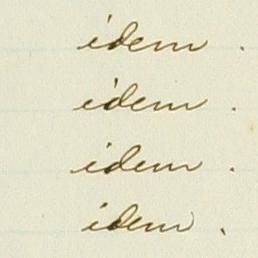 idem .
idem .
idem .
idem .